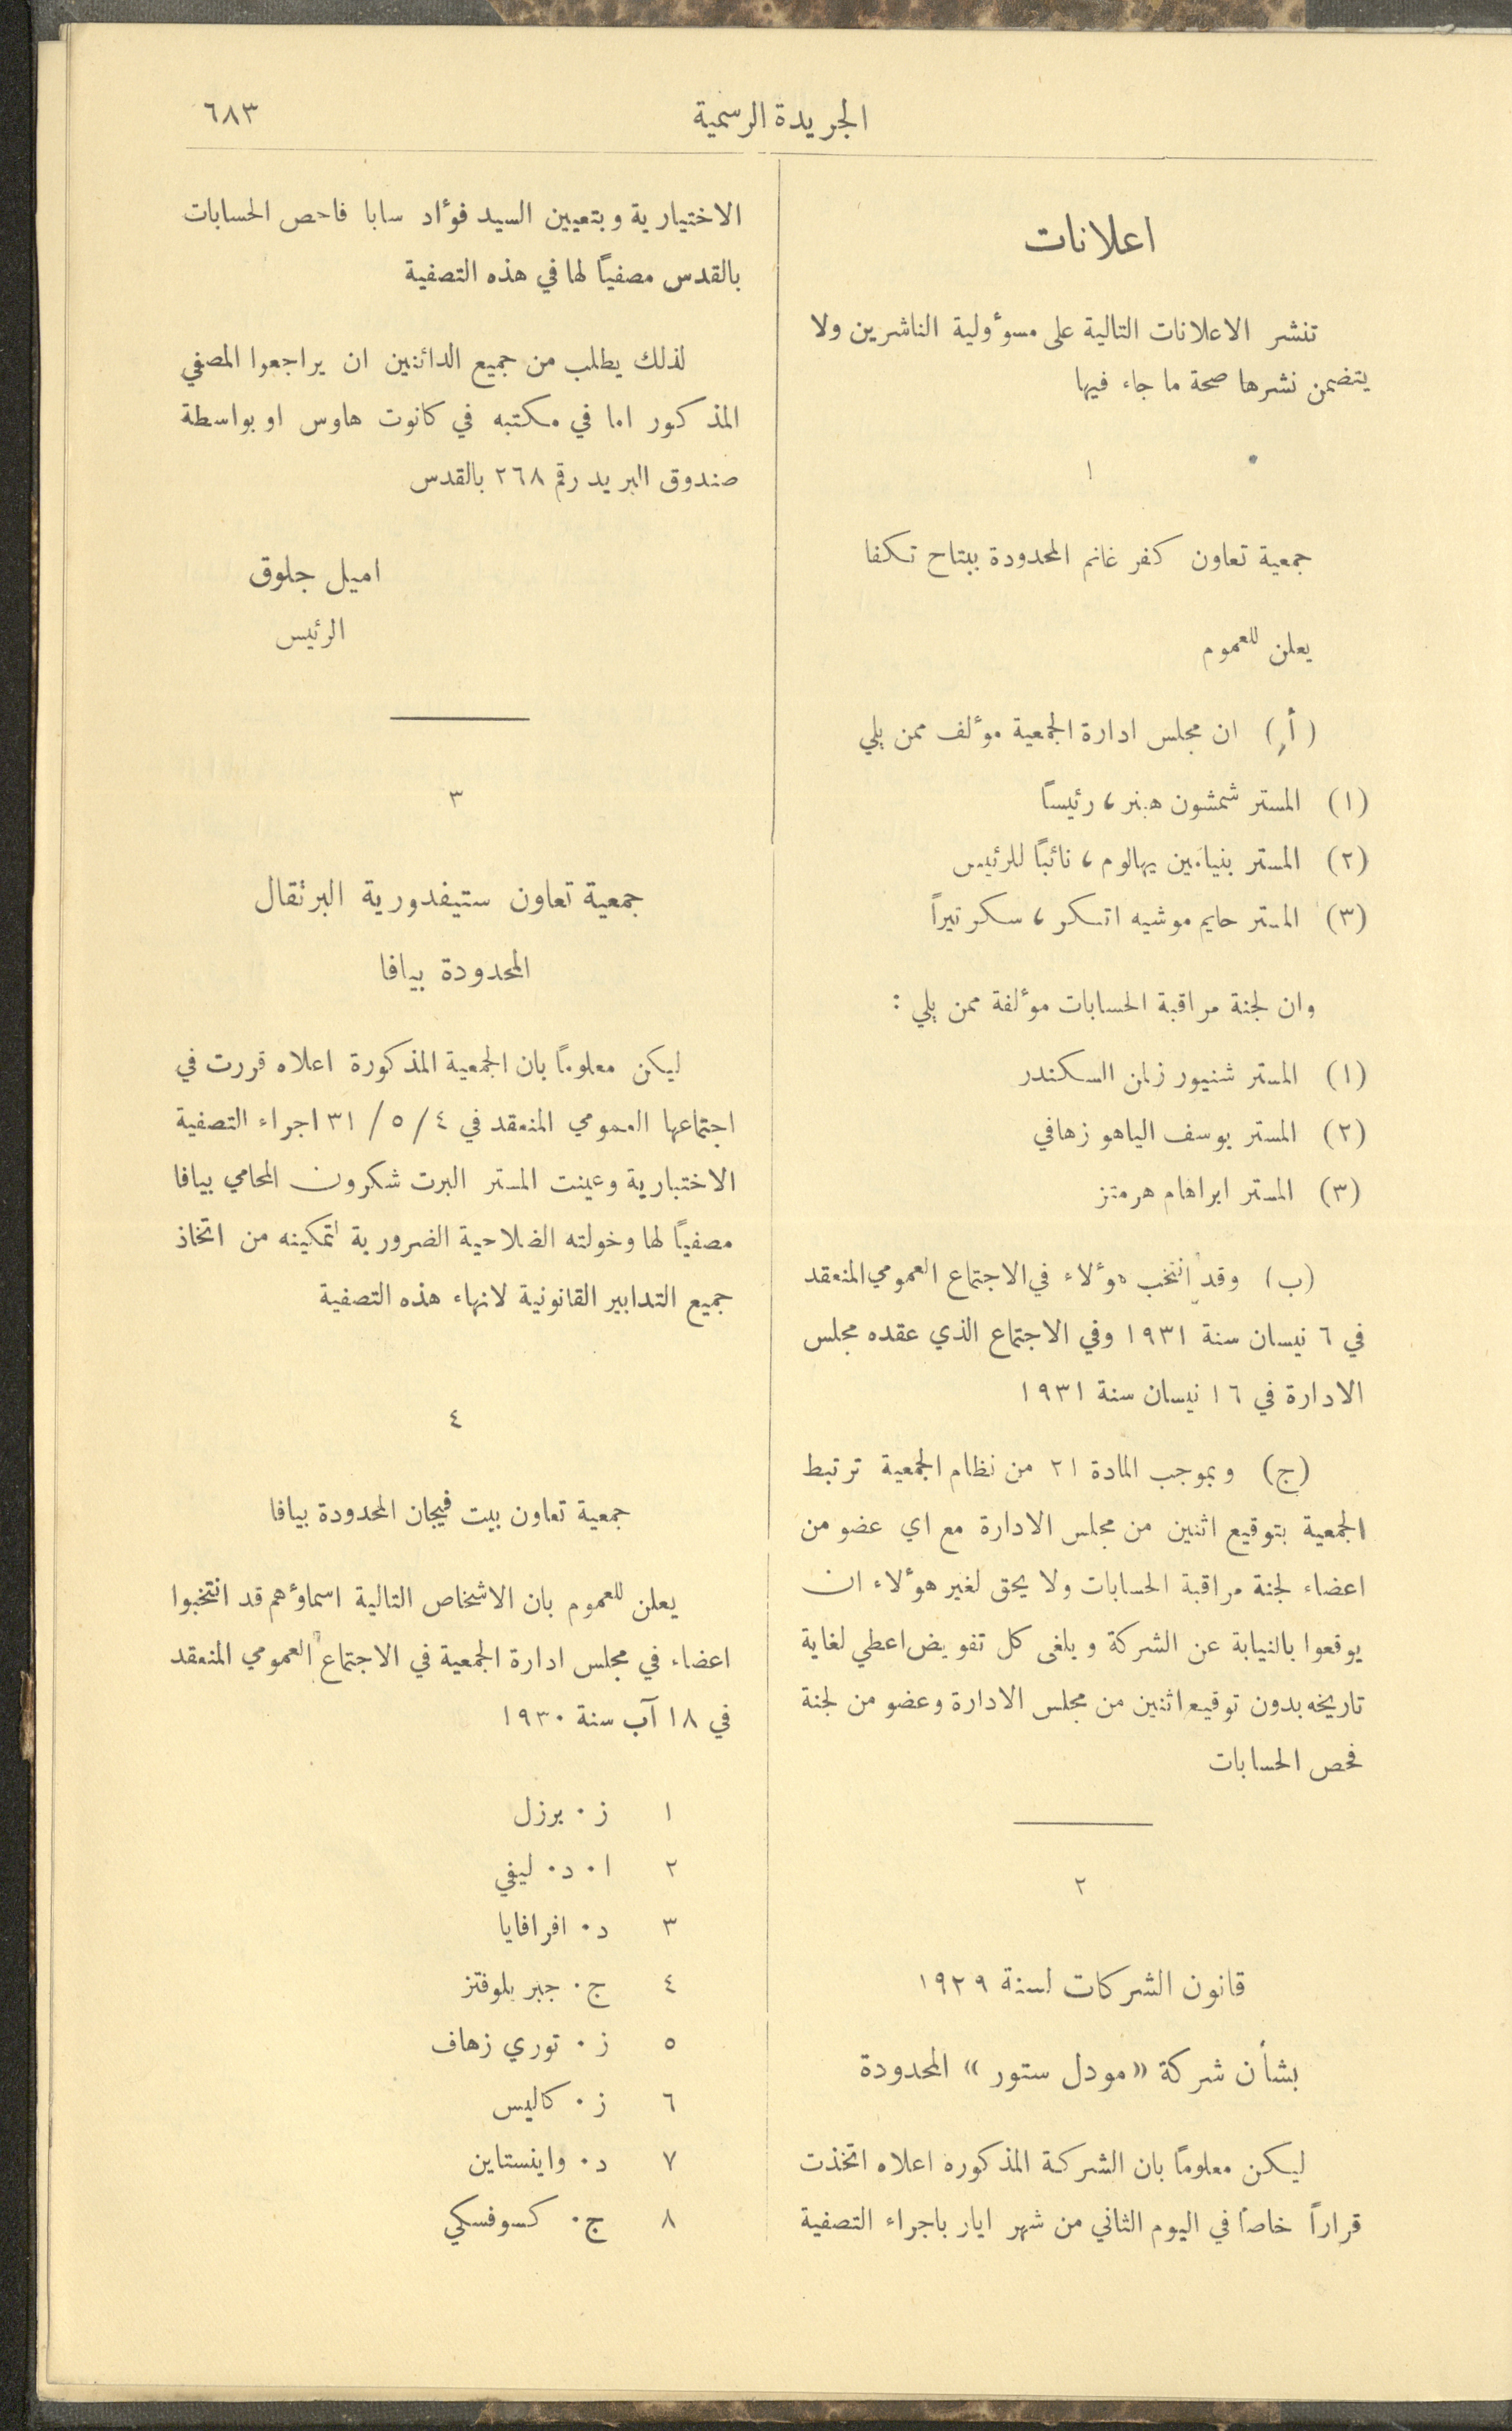 الجريدة الرسمية
٦٨٣
اعلانات
تنشر الاعلانات التالية على مسوءولية الناشرين ولا
يتضمن نشرها صحة ما جاء فيها
١
جمعية تعاون كفر غانم المحدودة ببتاح تكفا
يعلن للعموم
(أ) ان مجلس ادارة الجمعية موءلف ممن يلي
(١) المستر شمشون هبنر، رئيسًا
(٢) المستر بنيامين يهالوم، نائبًا للرئيس
(٣) المستر حايم موشيه اتسكر، سكرتيراً
وان لجنة مراقبة الحسابات موءلفة ممن يلي :
(١) المستر شنيور زلمن السكندر
(٢) المستر يوسف الياهو زهافي
(٣) المستر ابراهام هرمتز
(ب) وقد انتخب هوءلاء في الاجتماع العمومي المنعقد
في ٦ نيسان سنة ١٩٣١ وفي الاجتماع الذي عقده مجلس
الادارة في ١٦ نيسان سنة ١٩٣١
(ج) وبموجب المادة ٢١ من نظام الجمعية ترتبط
الجمعية بتوقيع اثنين من مجلس الادارة مع اي عضو من
اعضاء لجنة مراقبة الحسابات ولا يحق لغير هوءلاء ان
يوقعوا بالنيابة عن الشركة ويلغى كل تفويض اعطي لغاية
تاريخه بدون توقيع اثنين من مجلس الادارة وعضو من لجنة
فحص الحسابات
٢
قانون الشركات لسنة ١٩٢٩
بشأن شركة «مودل ستور» المحدودة
ليكن معلومًا بان الشركة المذكورة اعلاه اتخذت
قراراً خاصًا في اليوم الثاني من شهر ايار باجراء التصفية
الاختيارية وبتعيين السيد فوءاد سابا فاحص الحسابات
بالقدس مصفيًا لها في هذه التصفية
لذلك يطلب من جميع الدائنين ان يراجعوا المصفي
المذكور اما في مكتبه في كانوت هاوس او بواسطة
صندوق البريد رقم ٢٦٨ بالقدس
اميل جلوق
الرئيس
٣
جمعية تعاون ستيفدورية البرتقال
المحدودة بيافا
ليكن معلومًا بان الجمعية المذكورة اعلاه قررت في
اجتماعها العمومي المنعقد في ٤/ ٥/ ٣١ اجراء التصفية
الاختيارية وعينت المستر البرت شكرون المحامي بيافا
مصفيًا لها وخولته الصلاحية الضرورية لتمكينه من اتخاذ
جميع التدابير القانونية لانهاء هذه التصفية
٤
جمعية تعاون بيت فيجان المحدودة بيافا
يعلن للعموم بان الاشخاص التالية اسماوءهم قد انتخبوا
اعضاء في مجلس ادارة الجمعية في الاجتماع العمومي المنعقد
في ١٨ آب سنة ١٩٣٠
١ ز٠ برزل
٢ ا٠ د٠ ليفي
٣ د٠ افرافايا
٤ ج٠ جبر يلوفتز
٥ ز٠ توري زهاف
٦ ز٠ كاليس
٧ د٠ واينستاين
٨ ج٠ كسوفسكي